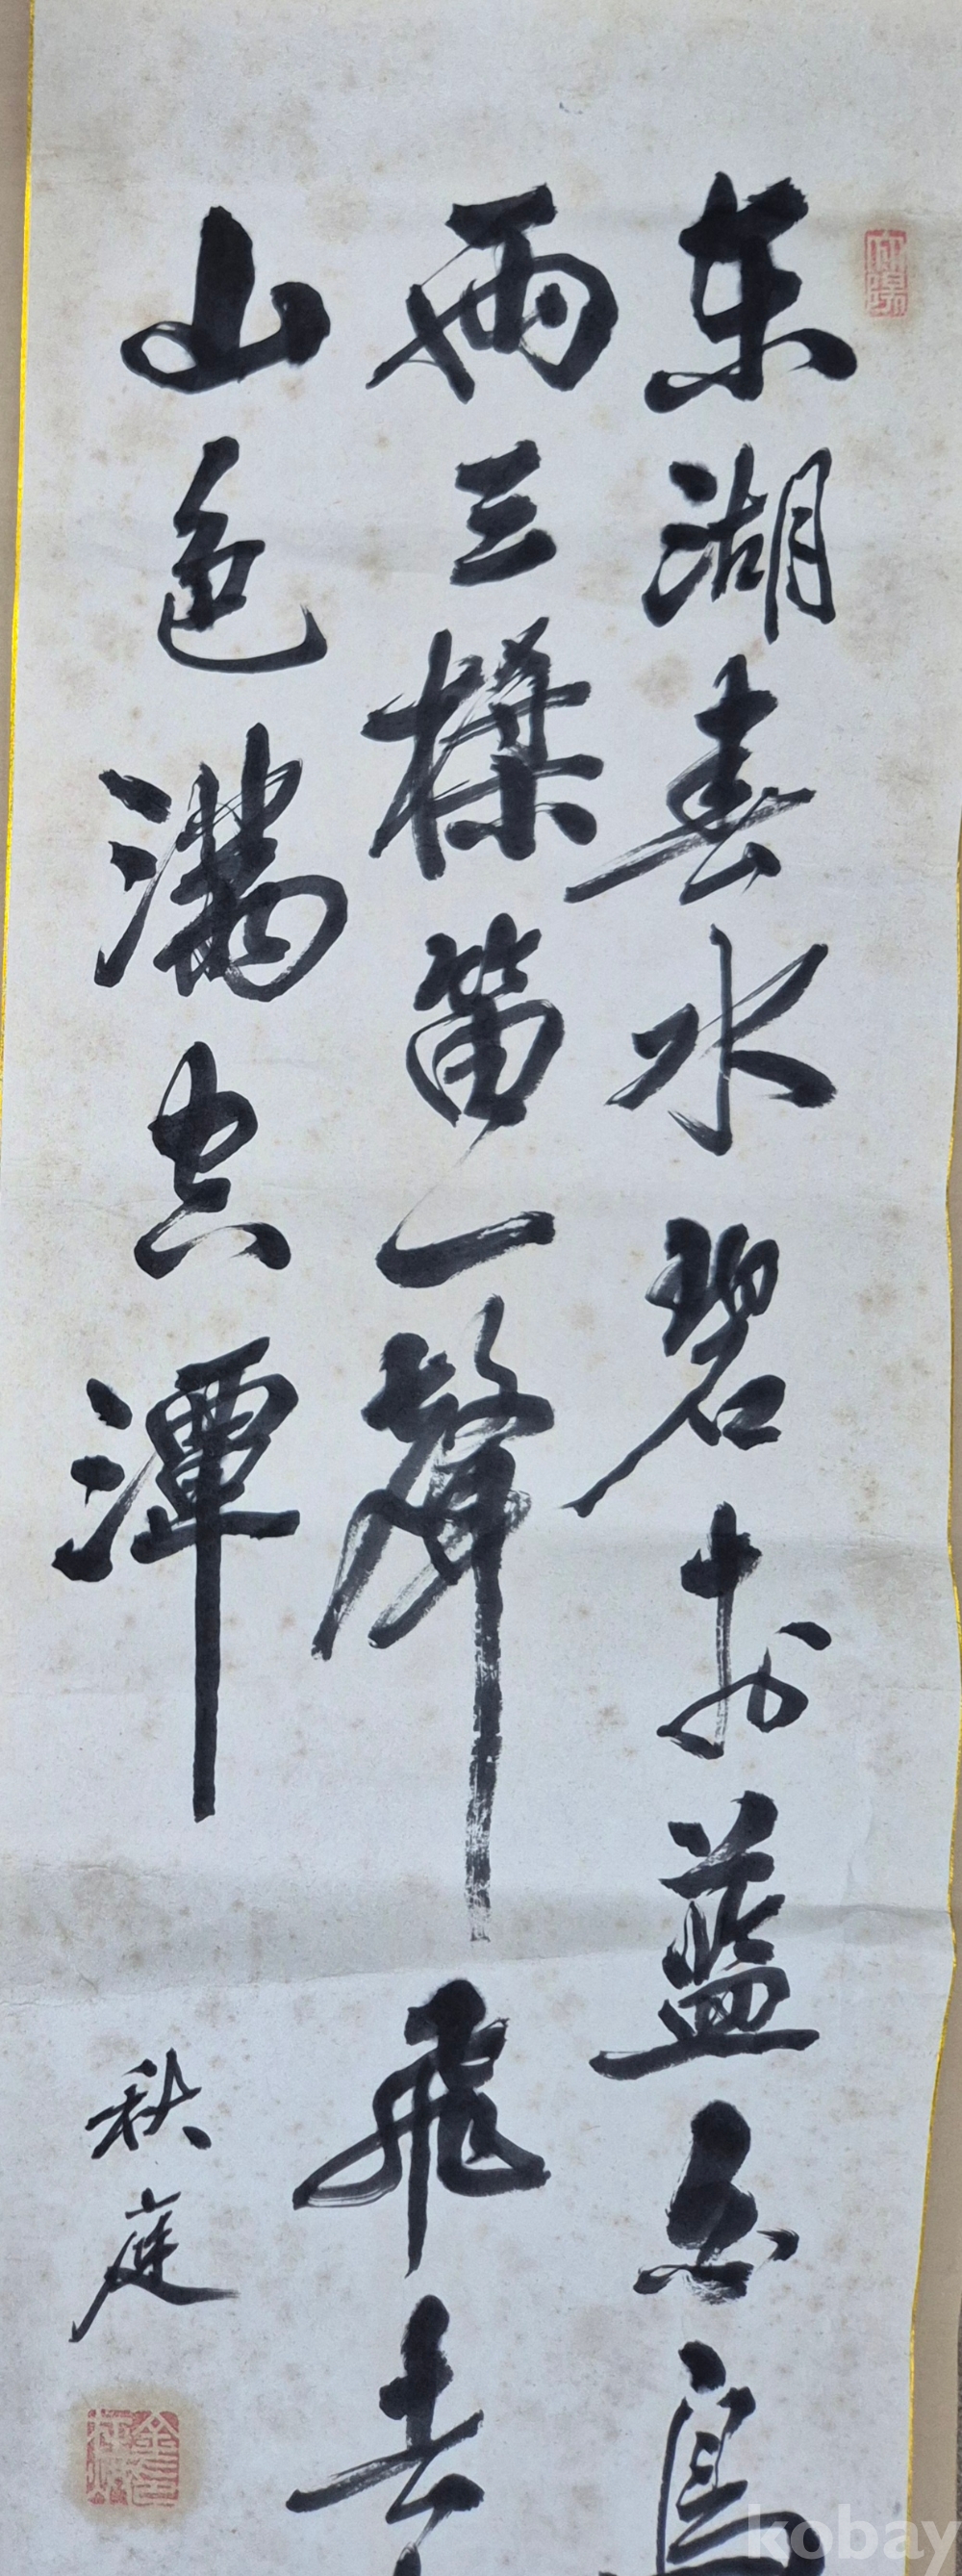 東湖春水碧於藍白鳥
兩三樣笛一聲飛去
山色滿空潭
秋庭
kobay